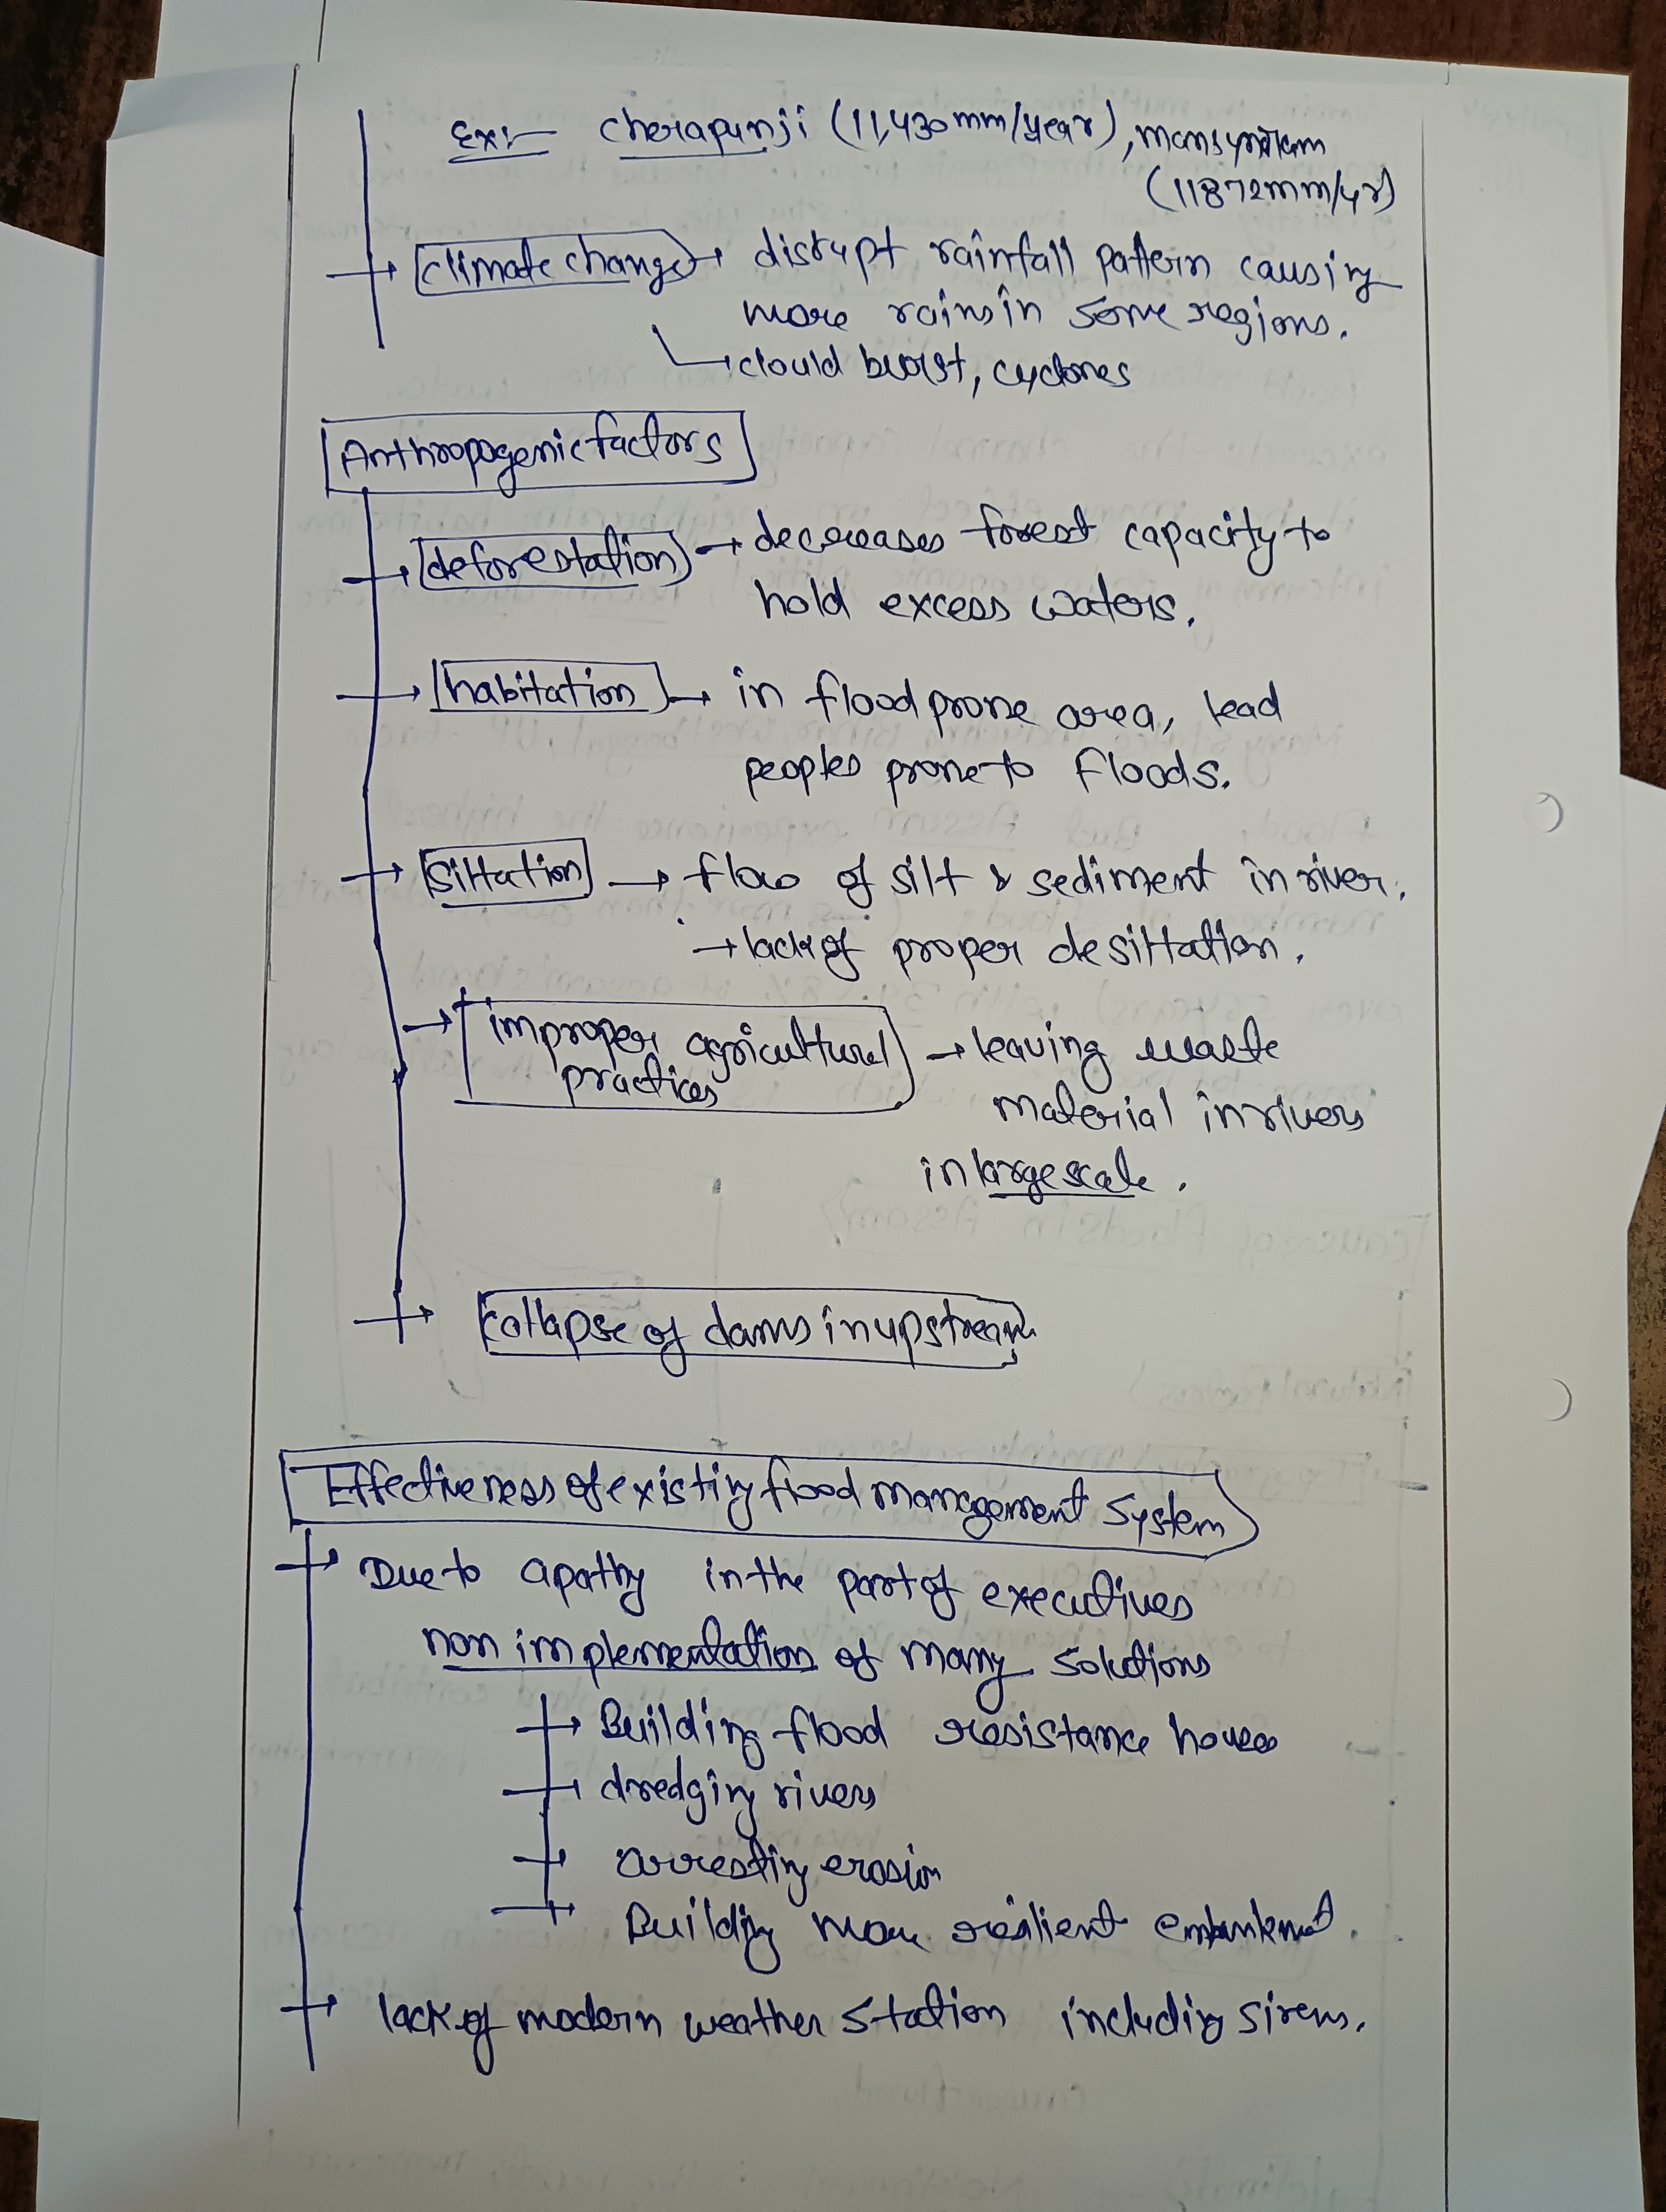 Ex:- Cherapunji (11,430mm/year), mansynram
(11872mm/yr)
climate change → disrupt rainfall pattern causing
more rains in some regions.
→ clould burst, cyclones
Anthropogenic factors
→ deforestation → decreases forest capacity to
hold excess waters.
→ habitation → in flood prone area, lead
peoples prone to floods.
→ siltation → flow of silt & sediment in river.
→ lack of proper desiltation.
→ improper agricultural
practices → leaving waste
material in rivers
in large scale.
→ Collapse of dams in upstream.
Effectiveness of existing flood management system
→ Due to apathy in the part of executives
non implementation of many solutions
→ Building flood resistance houses
→ dredging rivers
→ arresting erosion
→ Building more resilient embankment.
→ lack of modern weather station including sirens.